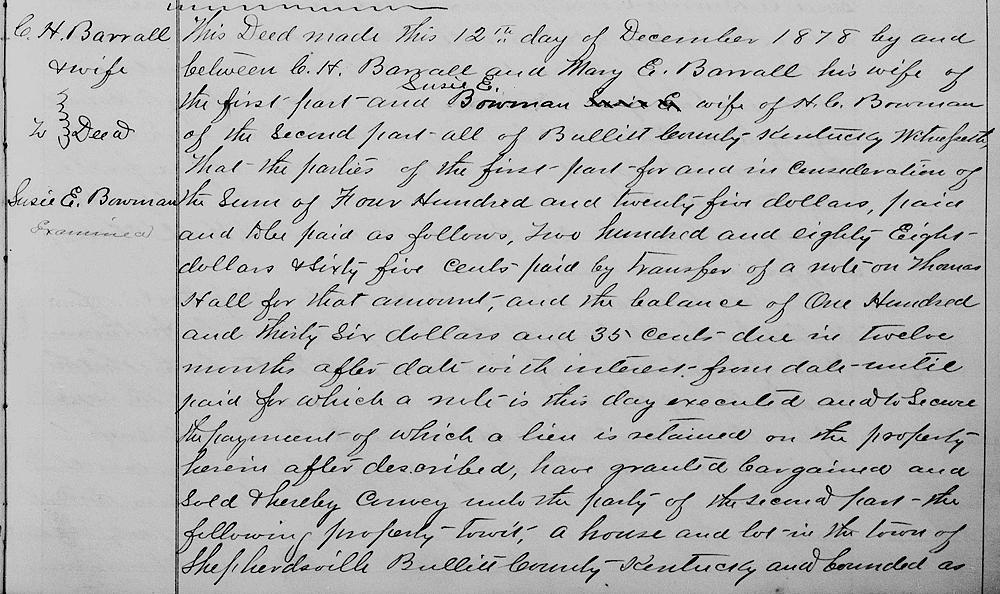 C. H. Barrall
& wife
to Deed
Susie E. Bowman
Examined
This Deed made this 12th day of December 1878 by and
between C. H. Barrall and Mary E. Barrall his wife of
Susie E.
the first part and Bowman Susie E wife of H. C. Bowman
of the Second part all of Bullitt County Kentucky Witnesseth,
That the parties of the first part for and in Consideration of
the Sum of Four Hundred and twenty five dollars, paid
and to be paid as follows, Two hundred and eighty Eight
dollars & Sixty five Cents paid by transfer of a note on Thomas
Hall for that amount, and the balance of One Hundred
and thirty Six dollars and 35 cents due in twelve
months after date with interest from date until
paid for which a note is this day executed and to Secure
the payment of which a lien is retained on the property
herein after described, have granted bargained and
Sold & hereby Convey unto the party of the second part the
following property towit, a house and lot in the town of
Shepherdsville Bullitt County Kentucky and bounded as